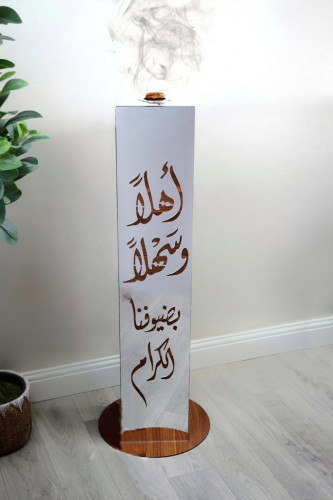 أهلاً
وسَهْلاً
بضيوفنا
الكرام